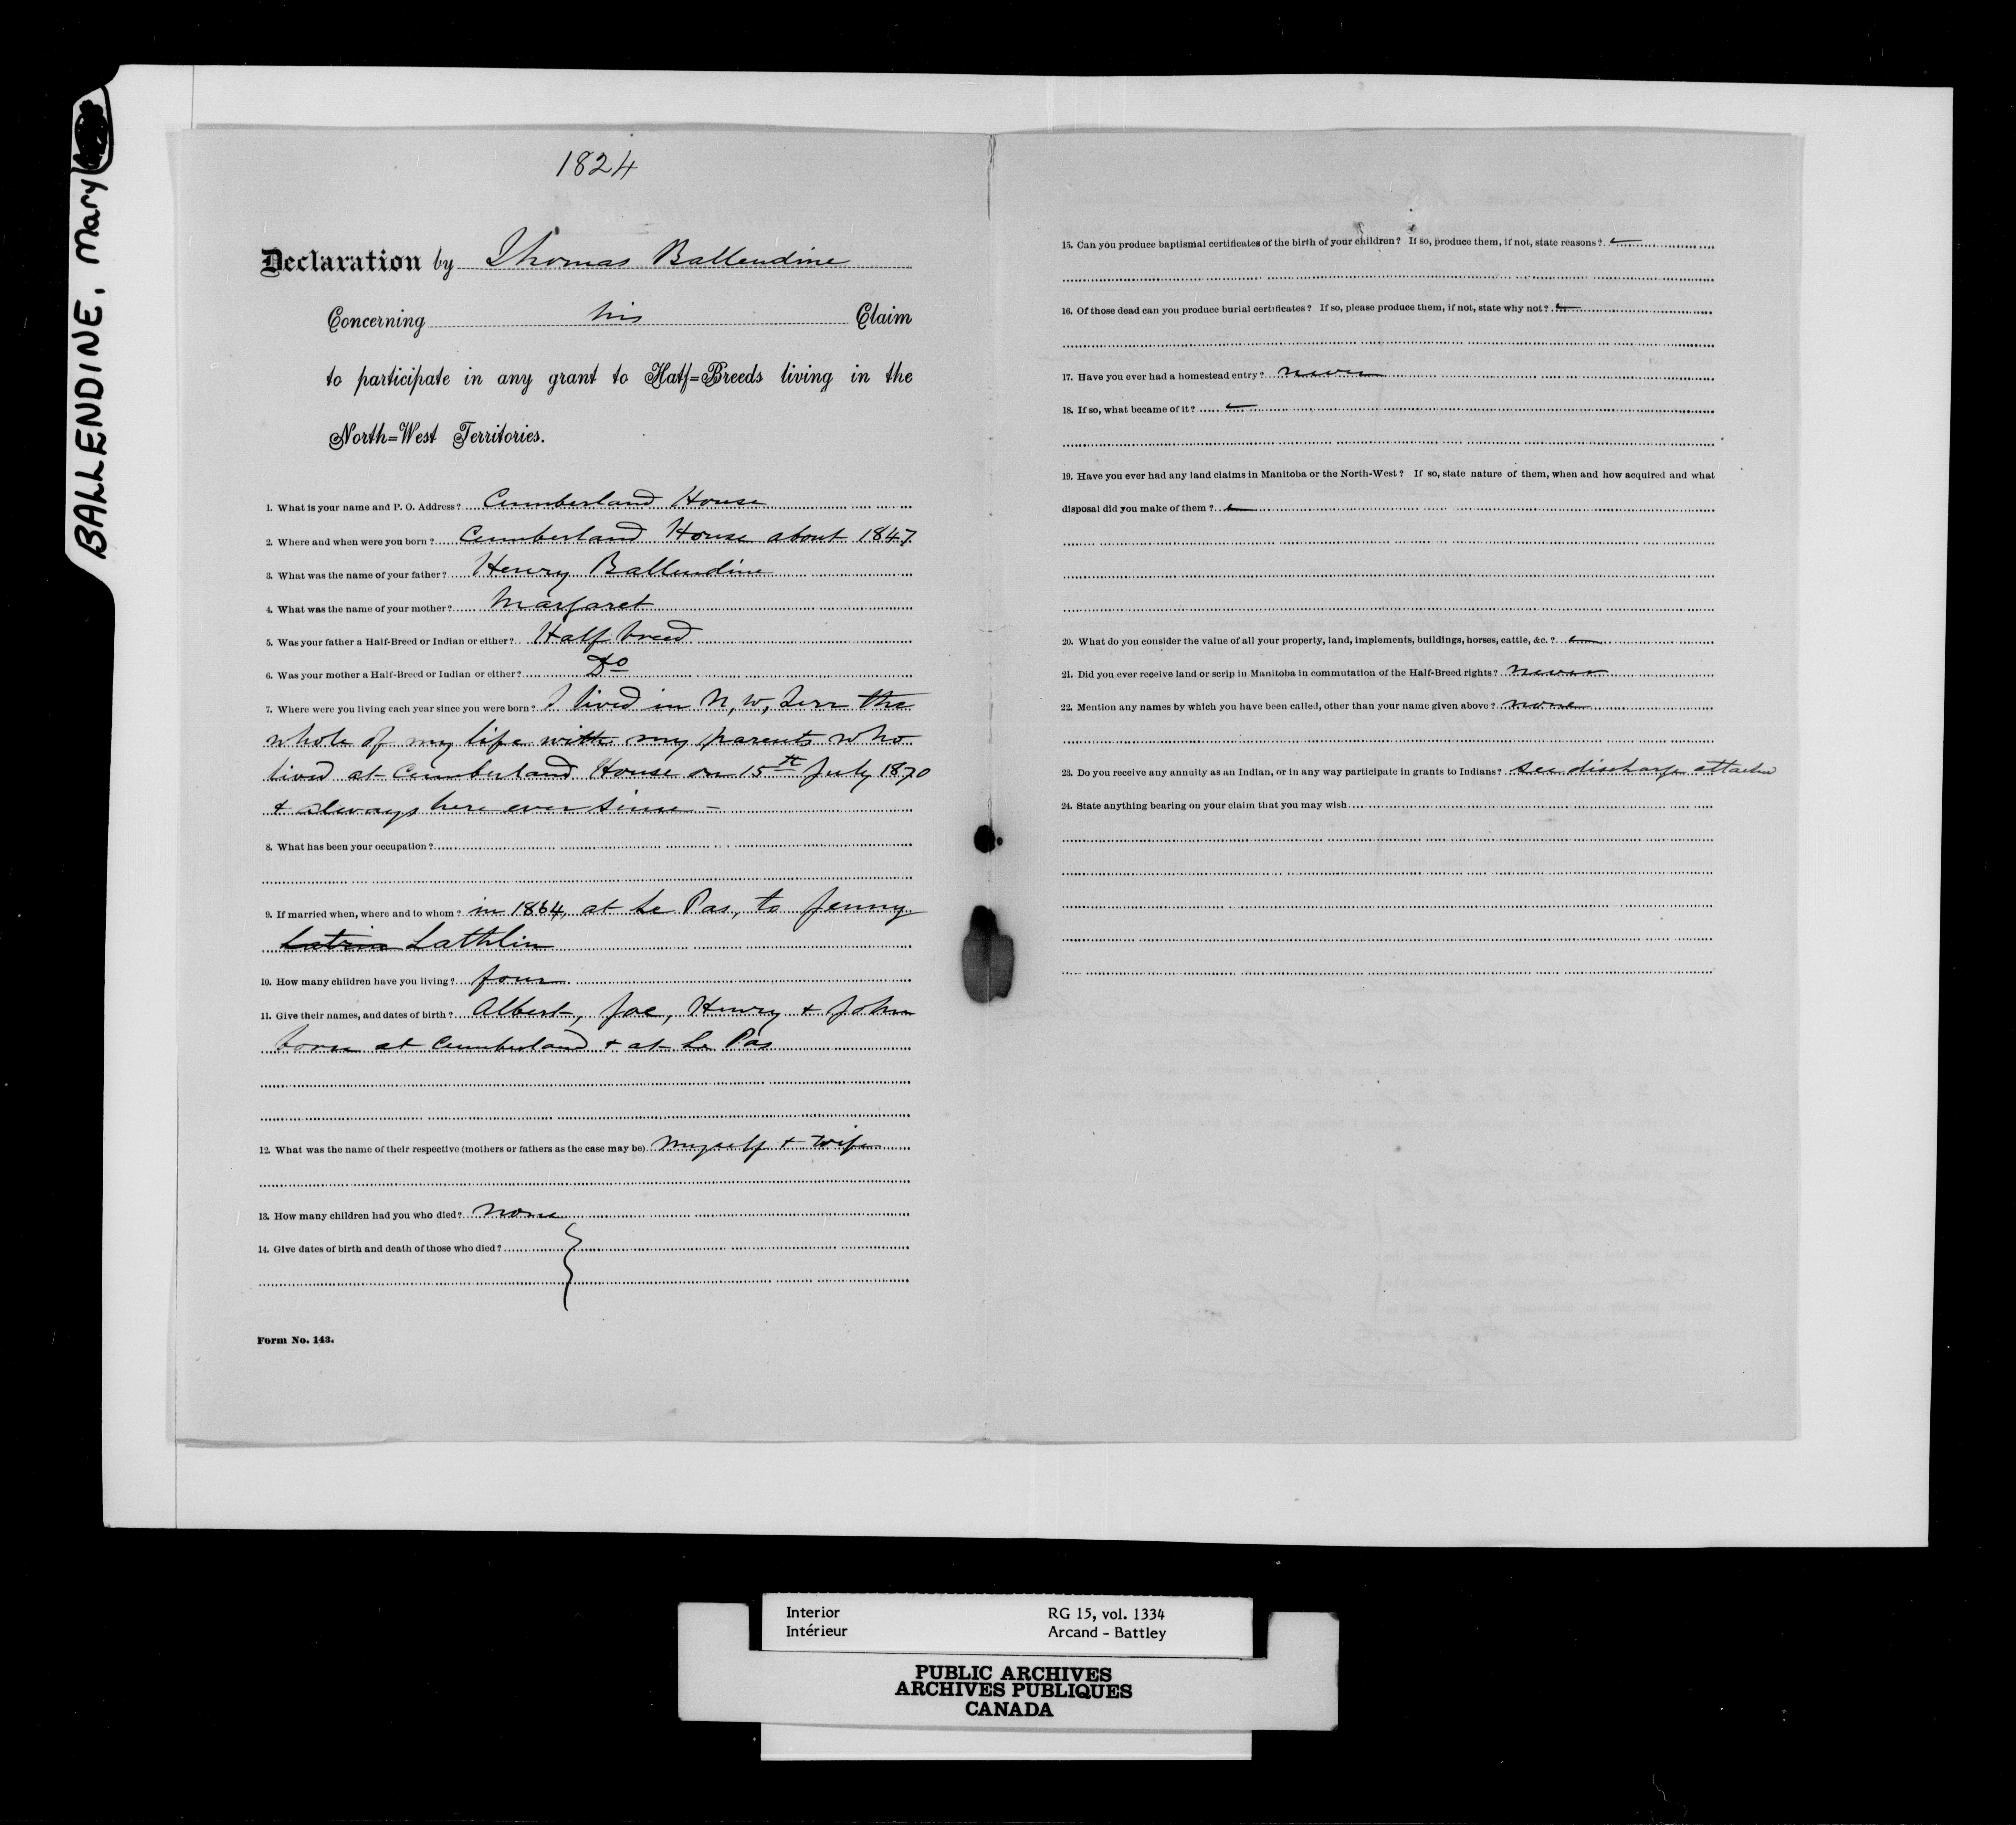 BALLENDINE, Mary
1824
Declaration by Thomas Ballendine
Concerning his Claim
to participate in any grant to Half=Breeds living in the
North=West Territories.
1. What is your name and P. O. Address? Cumberland House
2. Where and when were you born? Cumberland House about 1847
3. What was the name of your father? Henry Ballendine
4. What was the name of your mother? Margaret
5. Was your father a Half-Breed or Indian or either? Half breed
6. Was your mother a Half-Breed or Indian or either? Do
7. Where were you living each year since you were born? I lived in N, W, Terr the
whole of my life with my parents who
lived at Cumberland House on 15th July 1870
& always here ever since –
8. What has been your occupation?
9. If married when, where and to whom? in 1864, at Le Pas, to Jenny
Lathlin
10. How many children have you living? four
11. Give their names, and dates of birth? Albert, Joe, Henry & John
born at Cumberland & at Le Pas
12. What was the name of their respective (mothers or fathers as the case may be) Myself & wife
13. How many children had you who died? None
14. Give dates of birth and death of those who died?
Form No. 143.
15. Can you produce baptismal certificates of the birth of your children? If so, produce them, if not, state reasons?
16. Of those dead can you produce burial certificates? If so, please produce them, if not, state why not?
17. Have you ever had a homestead entry? never
18. If so, what became of it?
19. Have you ever had any land claims in Manitoba or the North-West? If so, state nature of them, when and how acquired and what
disposal did you make of them?
20. What do you consider the value of all your property, land, implements, buildings, horses, cattle, &c.?
21. Did you ever receive land or scrip in Manitoba in commutation of the Half-Breed rights? never
22. Mention any names by which you have been called, other than your name given above? none
23. Do you receive any annuity as an Indian, or in any way participate in grants to Indians? see discharge attached
24. State anything bearing on your claim that you may wish
Interior RG 15, vol. 1334
Intérieur Arcand - Battley
PUBLIC ARCHIVES
ARCHIVES PUBLIQUES
CANADA